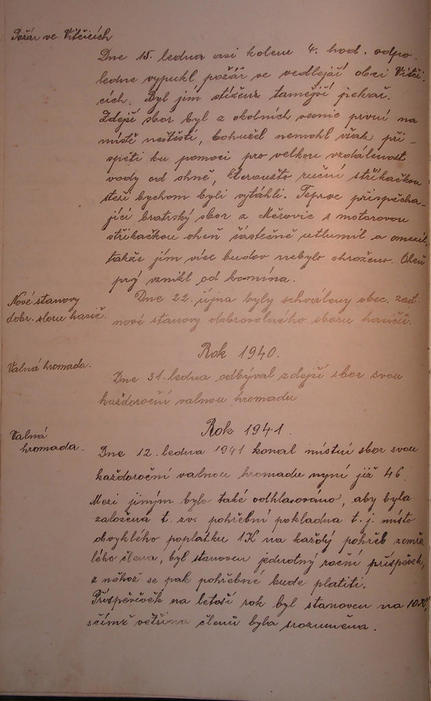 Požár ve Vitčicích
Dne 15. ledna asi kolem 4. hod. odpo-
ledne vypukl požár ve vedlejší obci Vitči-
cích. Byl jím stižen tamější pekař.
Zdejší sbor byl z okolních vesnic první na
místě neštěstí, bohužel nemohl však při-
spěti ku pomoci pro velkou vzdálenost
vody od ohně, ruční stříkačkou
bychom byli vytáhli. Teprve přispěcha-
jící bratrský sbor z Měrovic s motorovou
stříkačkou oheň částečně utlumil a omezil,
takže jím více budov nebylo ohroženo. Oheň
prý vznikl od komína.
Nové stanovy
dobr. sboru hasič.
Dne 22. října byly schváleny obec. zast.
nové stanovy dobrovolného sboru hasičů.
Rok 1940.
Valná hromada.
Dne 31. ledna odbýval zdejší sbor svou
každoroční valnou hromadu
Rok 1941.
Valná
hromada.
Dne 12. ledna 1941 konal místní sbor svou
každoroční valnou hromadu nyní již 46.
Mezi jiným bylo také odhlasováno, aby byla
založena t. zv. pohřební pokladna t. j. místo
obvyklého poplatku 1K na každý pohřeb zemře-
lého člena, byl stanoven jednotný roční příspěvek,
z něhož se pak pohřebné bude platiti.
Příspěvek na letoší rok byl stanoven na 10K,
s čímž většina členů byla srozuměna.